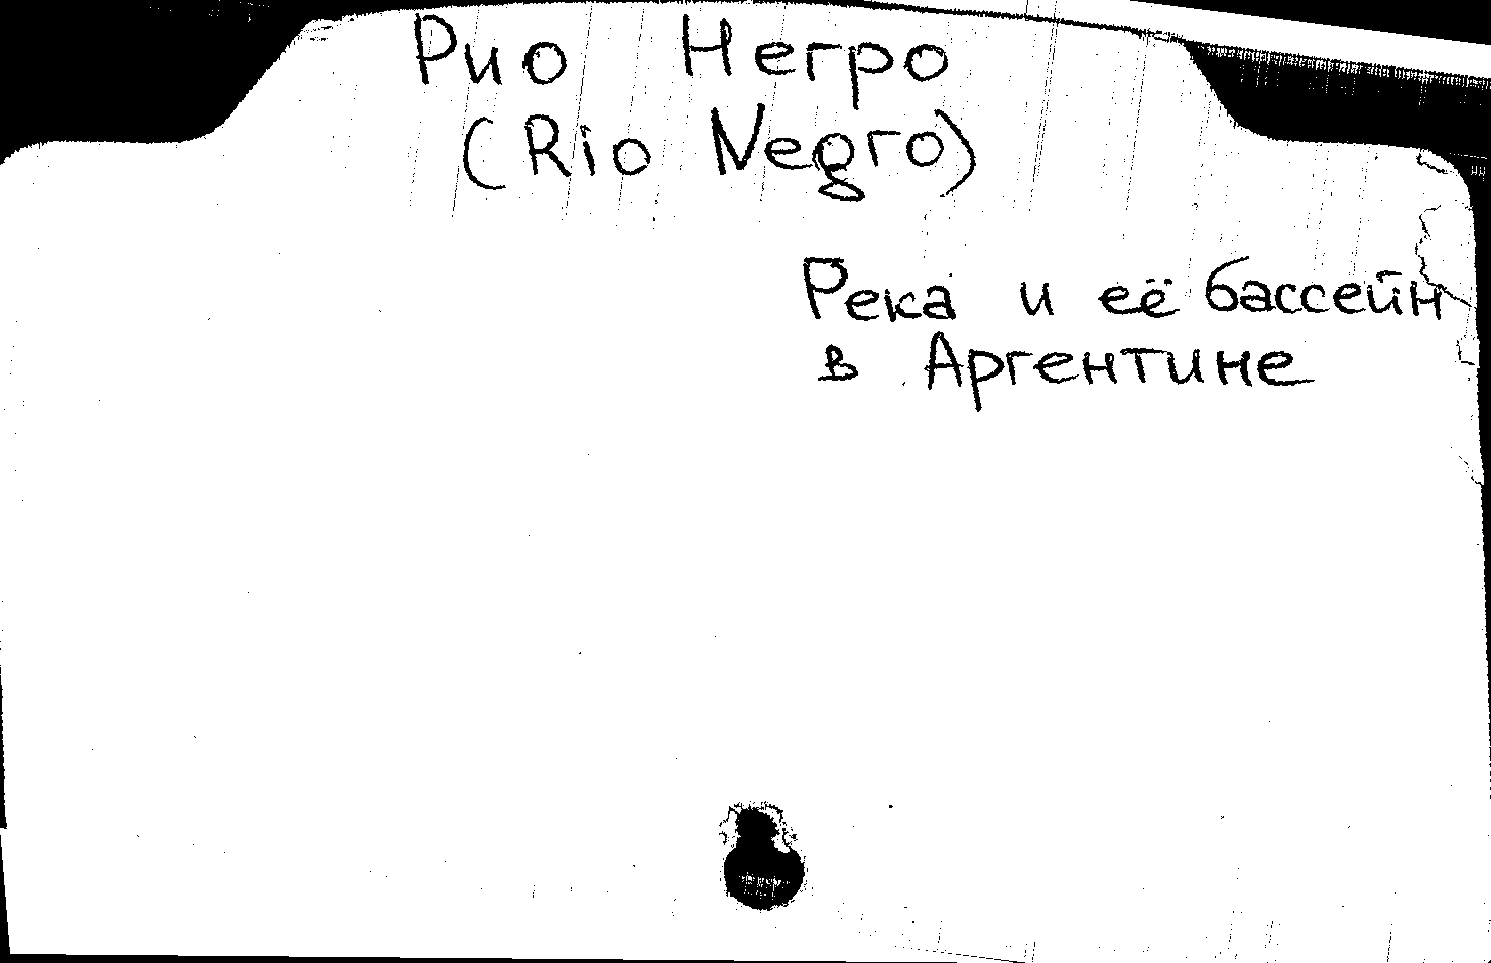 Рио Негро
(Rio Negro)
Река и её бассейн
в Аргентине